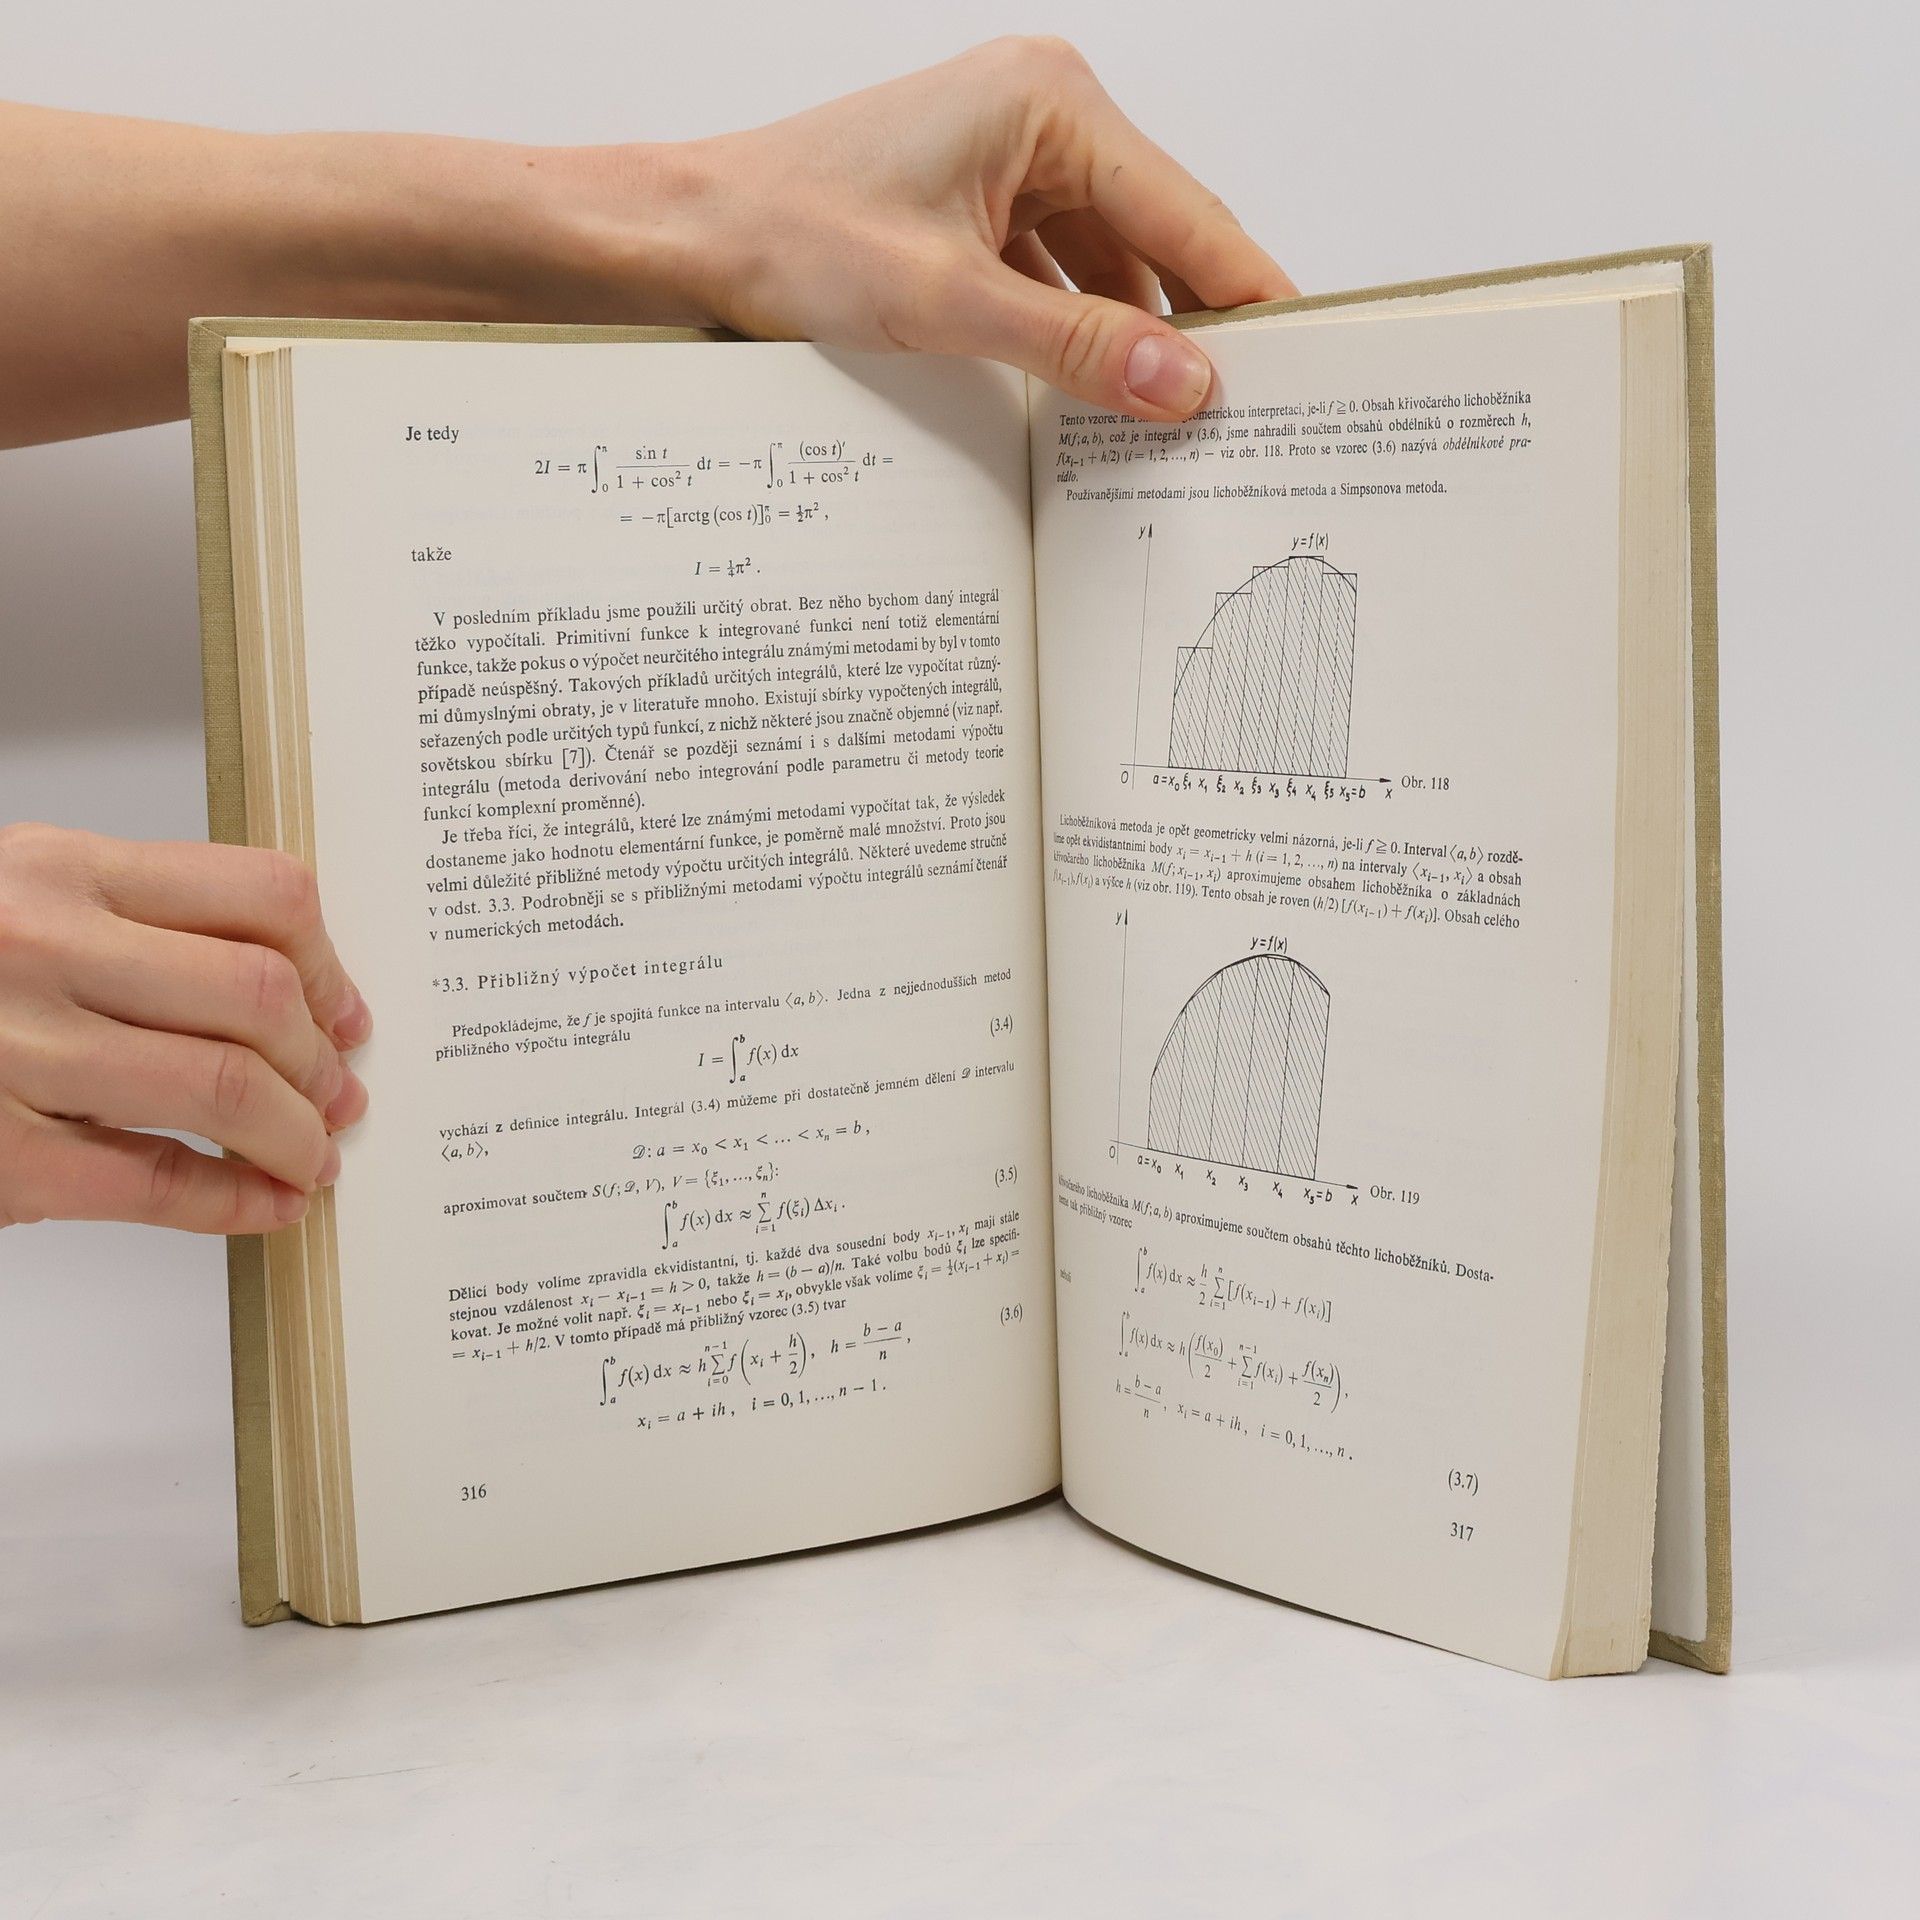 Je tedy
2I = π ∫₀^π sin t / (1 + cos² t) dt = −π ∫₀^π (cos t)′ / (1 + cos² t) dt =
= −π[arctg (cos t)]₀^π = ½π² ,
takže
I = ¼π² .
V posledním příkladu jsme použili určitý obrat. Bez něho bychom daný integrál
těžko vypočítali. Primitivní funkce k integrované funkci není totiž elementární
funkce, takže pokus o výpočet neurčitého integrálu známými metodami by byl v tomto
případě neúspěšný. Takových příkladů určitých integrálů, které lze vypočítat různý-
mi důmyslnými obraty, je v literatuře mnoho. Existují sbírky vypočtených integrálů,
seřazených podle určitých typů funkcí, z nichž některé jsou značně objemné (viz např.
sovětskou sbírku [7]). Čtenář se později seznámí i s dalšími metodami výpočtu
integrálu (metoda derivování nebo integrování podle parametru či metody teorie
funkcí komplexní proměnné).
Je třeba říci, že integrálů, které lze známými metodami vypočítat tak, že výsledek
dostaneme jako hodnotu elementární funkce, je poměrně malé množství. Proto jsou
velmi důležité přibližné metody výpočtu určitých integrálů. Některé uvedeme stručně
v odst. 3.3. Podrobněji se s přibližnými metodami výpočtu integrálů seznámí čtenář
v numerických metodách.
*3.3. Přibližný výpočet integrálu
Předpokládejme, že f je spojitá funkce na intervalu ⟨a, b⟩. Jedna z nejjednodušších metod
přibližného výpočtu integrálu
I = ∫ₐᵇ f(x) dx (3.4)
vychází z definice integrálu. Integrál (3.4) můžeme při dostatečně jemném dělení 𝒟 intervalu
⟨a, b⟩,
𝒟: a = x₀ < x₁ < ... < xₙ = b ,
aproximovat součtem S(f; 𝒟, V), V = {ξ₁, ..., ξₙ}:
∫ₐᵇ f(x) dx ≈ Σᵢ₌₁ⁿ f(ξᵢ) Δxᵢ . (3.5)
Dělicí body volíme zpravidla ekvidistantní, tj. každé dva sousední body xᵢ₋₁, xᵢ mají stále
stejnou vzdálenost xᵢ − xᵢ₋₁ = h > 0, takže h = (b − a)/n. Také volbu bodů ξᵢ lze specifi-
kovat. Je možné volit např. ξᵢ = xᵢ₋₁ nebo ξᵢ = xᵢ, obvykle však volíme ξᵢ = ½(xᵢ₋₁ + xᵢ) =
= xᵢ₋₁ + h/2. V tomto případě má přibližný vzorec (3.5) tvar
∫ₐᵇ f(x) dx ≈ h Σᵢ₌₀ⁿ⁻¹ f(xᵢ + h/2), h = (b − a)/n , (3.6)
xᵢ = a + ih , i = 0, 1, ..., n − 1 .
316
Tento vzorec má geometrickou interpretaci, je-li f ≧ 0. Obsah křivočarého lichoběžníka
M(f; a, b), což je integrál v (3.6), jsme nahradili součtem obsahů obdélníků o rozměrech h,
f(xᵢ₋₁ + h/2) (i = 1, 2, ..., n) — viz obr. 118. Proto se vzorec (3.6) nazývá obdélníkové pra-
vidlo.
Používanějšími metodami jsou lichoběžníková metoda a Simpsonova metoda.
y
y=f(x)
0 a=x₀ ξ₁ x₁ ξ₂ x₂ ξ₃ x₃ ξ₄ x₄ ξ₅ x₅=b x Obr. 118
Lichoběžníková metoda je opět geometricky velmi názorná, je-li f ≧ 0. Interval ⟨a, b⟩ rozdě-
líme opět ekvidistantními body xᵢ = xᵢ₋₁ + h (i = 1, 2, ..., n) na intervaly ⟨xᵢ₋₁, xᵢ⟩ a obsah
křivočarého lichoběžníka M(f; xᵢ₋₁, xᵢ) aproximujeme obsahem lichoběžníka o základnách
f(xᵢ₋₁), f(xᵢ) a výšce h (viz obr. 119). Tento obsah je roven (h/2) [f(xᵢ₋₁) + f(xᵢ)]. Obsah celého
y
y=f(x)
0 a=x₀ x₁ x₂ x₃ x₄ x₅=b x Obr. 119
křivočarého lichoběžníka M(f; a, b) aproximujeme součtem obsahů těchto lichoběžníků. Dosta-
neme tak přibližný vzorec
∫ₐᵇ f(x) dx ≈ h/2 Σᵢ₌₁ⁿ [f(xᵢ₋₁) + f(xᵢ)]
neboli
∫ₐᵇ f(x) dx ≈ h(f(x₀)/2 + Σᵢ₌₁ⁿ⁻¹ f(xᵢ) + f(xₙ)/2) ,
h = (b − a)/n , xᵢ = a + ih , i = 0, 1, ..., n .
(3.7)
317